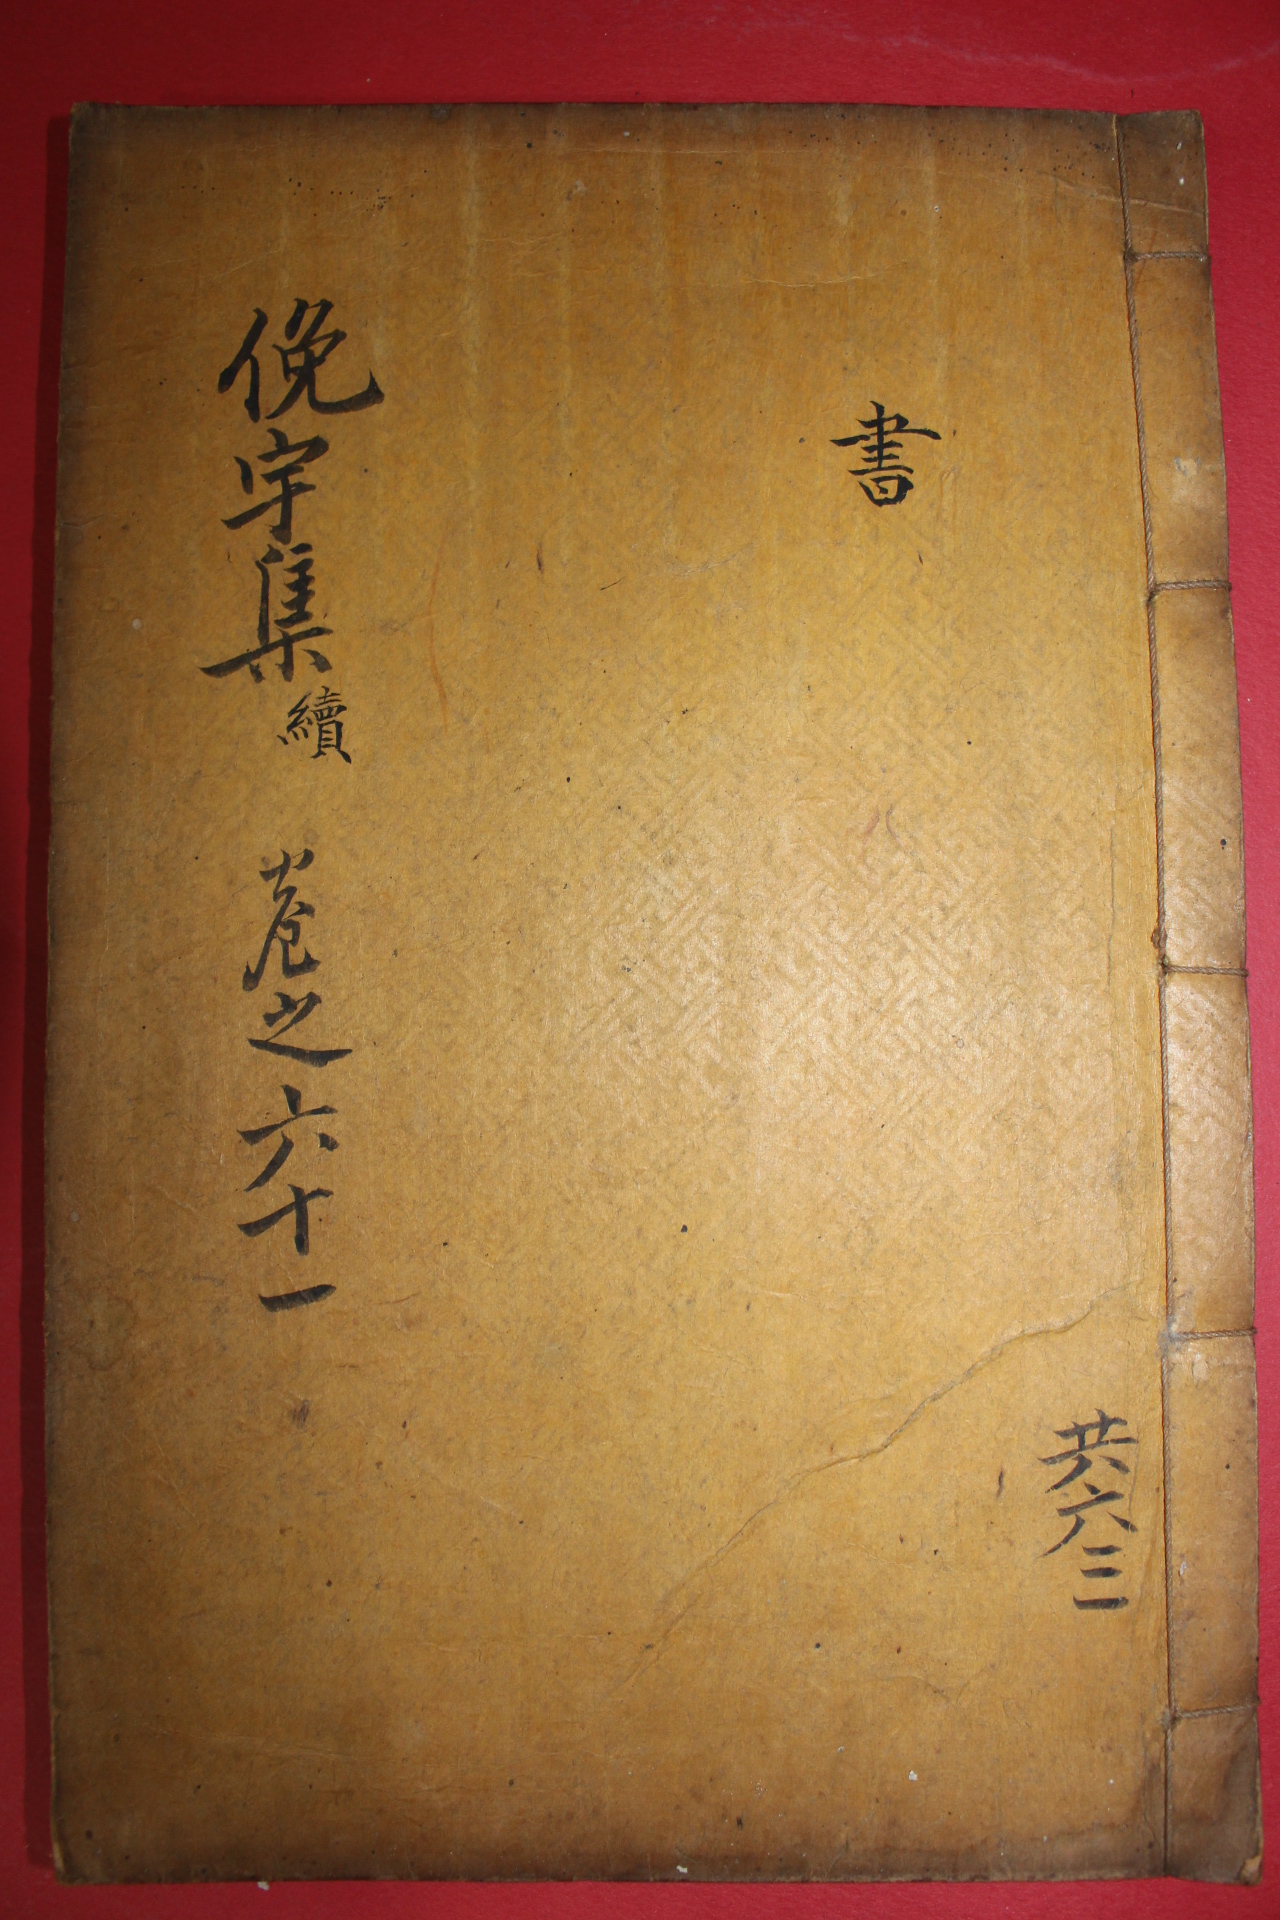 書
共六三
俛宇集續 卷之六十一